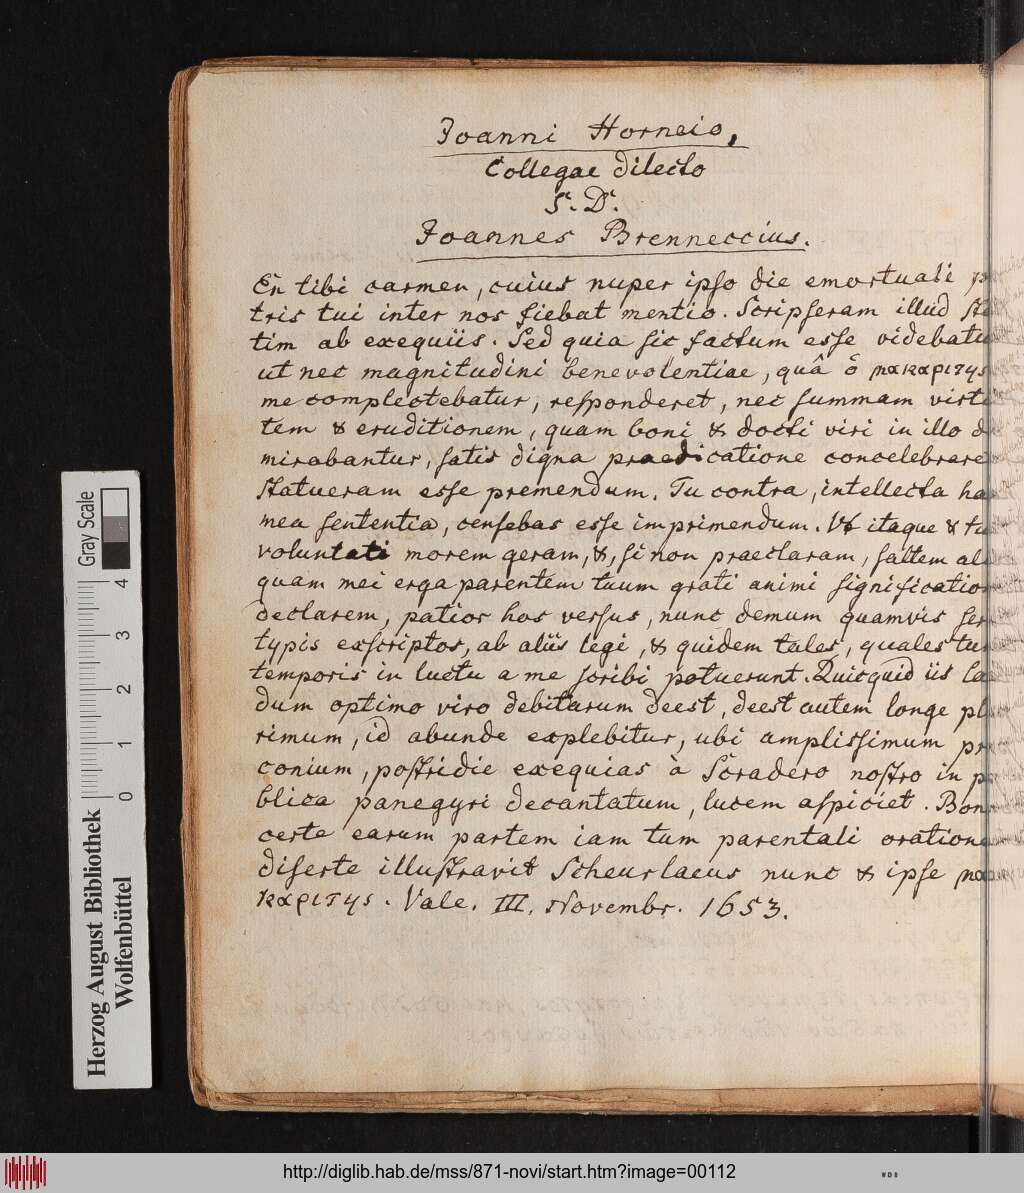 Joanni Horneio,
Collegae dilecto
S. D.
Joannes Brenneccius.
En tibi carmen, cuius nuper ipso die emortuali p
tris tui inter nos fiebat mentio. Scripseram illud sta
tim ab exequiis. Sed quia sic factum esse videbatu
ut nec magnitudini benevolentiae, quâ ὁ μακαρίτης
me complectebatur, responderet, nec summam virtu
tem & eruditionem, quam boni & docti viri in illo
mirabantur, satis digna praedicatione concelebraret
statueram esse premendum. Tu contra, intellecta hac
mea sententia, censebas esse imprimendum. Ut itaque & tu
voluntati morem geram, &, si non praeclaram, saltem ali
quam mei erga parentem tuum grati animi significatio
declarem, patior hos versus, nunc demum quamvis ser
typis exscriptos, ab aliis legi, & quidem tales, quales tu
temporis in luctu a me scribi potuerunt. Quicquid iis la
dum optimo viro debitarum deest, deest autem longe pl
rimum, id abunde explebitur, ubi amplissimum pr
conium, postridie exequias à Scradero nostro in p
blica panegyri decantatum, lucem aspiciet. Bon
certe earum partem iam tum parentali oratione
diserte illustravit Scheurlaeus nunc & ipse μα
καρίτης. Vale. III. Novembr. 1653.
Herzog August Bibliothek
Wolfenbüttel
0 1 2 3 4
Gray Scale
http://diglib.hab.de/mss/871-novi/start.htm?image=00112